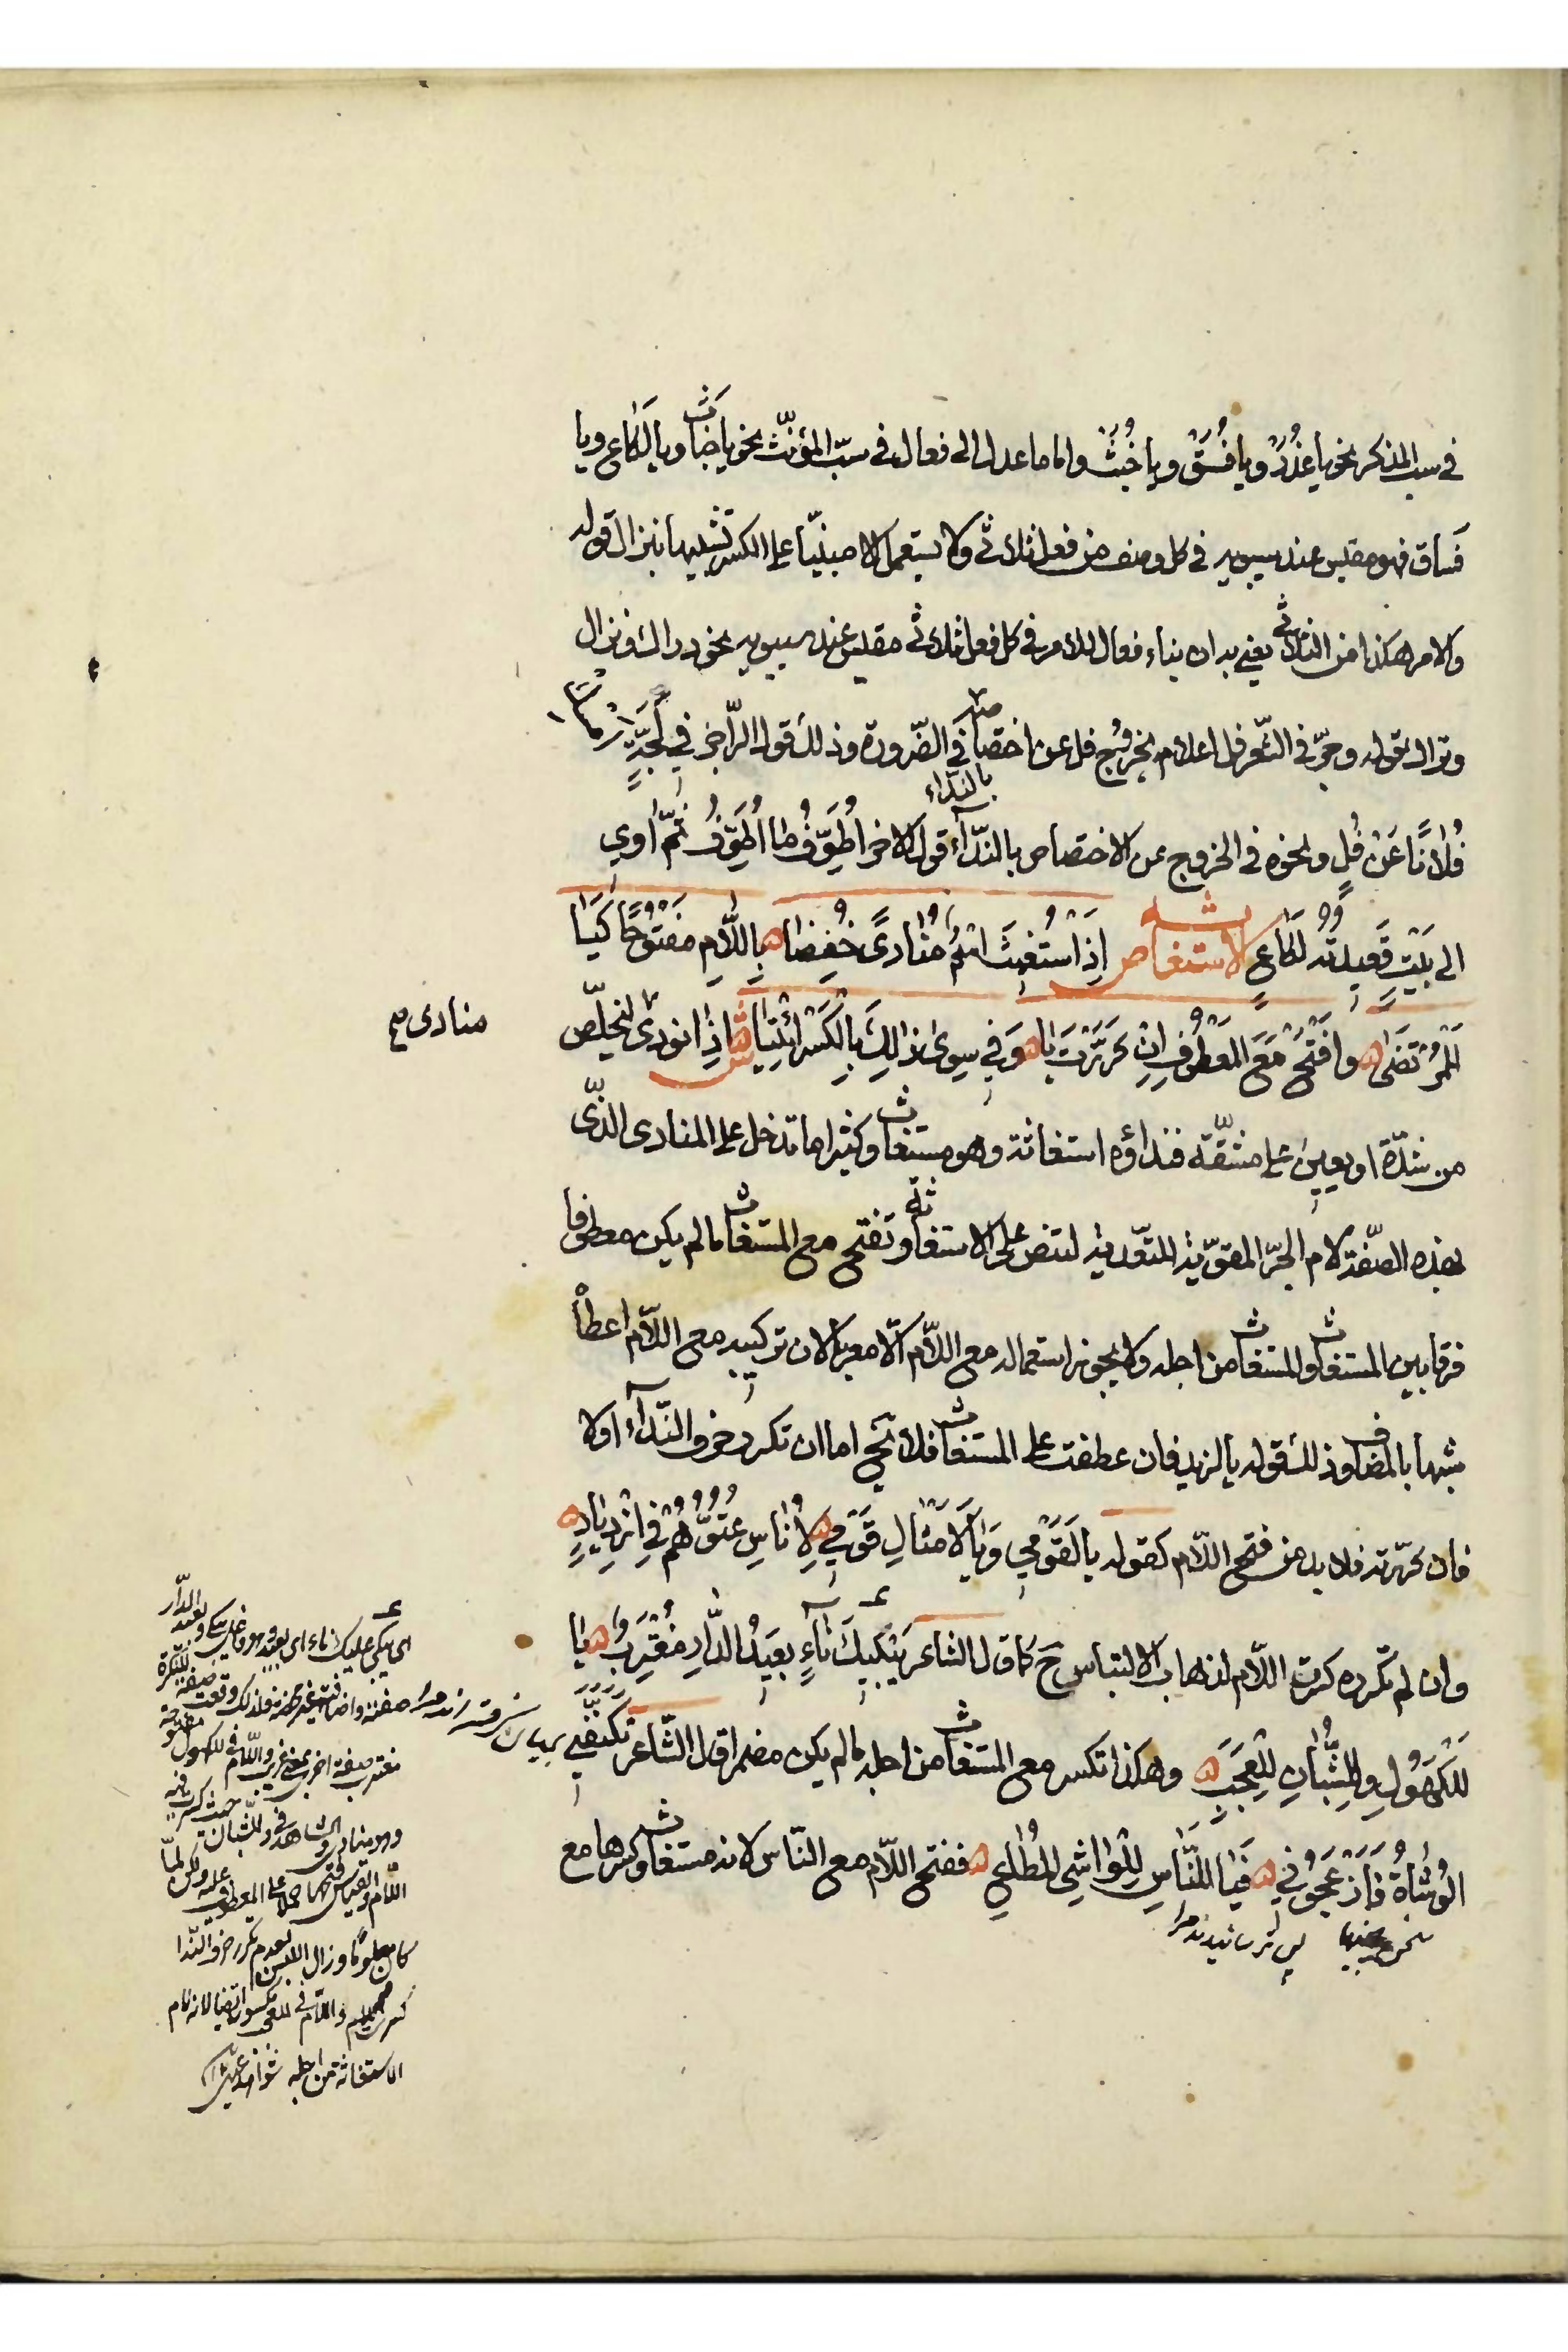 في سب المذكر نحو يا غُدَرُ ويا فُسَقُ ويا خُبَثُ واما ما عدل الى فعال في سبّ المؤنّث نحو يا خَبَاثِ ويا لَكَاعِ ويا
فَسَاقِ فهو مقيس عند سيبويه في كل وصف من فعل ثلاثي ولا يستعمل الا مبنيّا على الكسر تشبيها بنزال قوله
والامر هكذا من الثلاثي يعني به ان بناء فعال للامر في كل فعل ثلاثي مقيس عند سيبويه نحو دراك ونزال
وتراك بقوله وجرّ في الشّعر فل اعلام بخروج فل عن اختصاصه بالنداء في الضّرورة وذلك قول الرّاجز في لُجَّةٍ أَمْسِكْ
فُلَانًا عَنْ فُلِ ونحوه في الخروج عن الاختصاص بالنّدآء قول الاخر أُطَوِّفُ ما أُطَوِّفُ ثُمَّ آوي
الى بَيْتٍ قَعِيدَتُهُ لَكَاعِ الاستغاثه اِذَا اسْتُغِيثَ اسْمٌ مُنَادًى خُفِضَا ه بِاللَّامِ مَفْتُوحًا كَيَا
لَلْمُرْتَضَى ه وافْتَحْ مَعَ المَعْطُوفِ اِنْ كَرَّرْتَ يَا ه وَفي سِوَى ذَالِكَ بِالْكَسْرِ ائْتِيَا ش اذا نودى لتخلّص
منادى صح
من شدّة او يعين على مشقّة فنداؤه استغاثة وهو مستغاث وكثيرا ما تدخل على المنادى الذّى
بهذه الصّفة لام الجرّ المقوّية للتعدية لتنص على الاستغاثة وتفتح مع المستغاث ما لم يكن معطوفا
فرقا بين المستغاث والمستغاث من اجله ولا يجوز استعماله مع اللّام الّا معربا لان تركيبه مع اللّام اعطاْ
شبها بالمضاف وذلك قوله يا لزيد فان عطفت على المستغاث فلا تخ اما ان تكرر حرف النّدآء اولا
فان كرّرته فلا بد من فتح اللّام كقوله يا لَقَوْمِي وَيَا لَأَمْثَالِ قَوْمِي ه لِأُنَاسٍ عُتُوُّهُمْ في ازْدِيَادِ ه
وان لم تكرره كسرت اللّام لذهاب الالتباس ح كما قال الشاعر يَبْكِيكَ نَآءٍ بعَيدُ الدَّارِ مُغْتَرِبُ ه يَا
لَلْكُهُولِ وِلِلشُّبَّانِ لِلْعَجَبِ ه وهكذا تكسر مع المستغاث من اجله ما لم يكن مضمرا قال الشّاعر تَكَنَّفَنِي
الوُشَاةُ فَأَزْعَجُونِي ه فَيَا لَلنَّاسِ لِلْوَاشِي المُطَاعِ ه ففتح اللّام مع النّاس لانه مستغاث وكسرها مع
اى يبكي عليك ناء اى بعيد وهو فاعل يبكي وبعيد الدّار
مغترب صفة اخرى بمعنى غريب واللّام في للكهول مفتوحة
الاستغاثة من اجله شواهد عيني